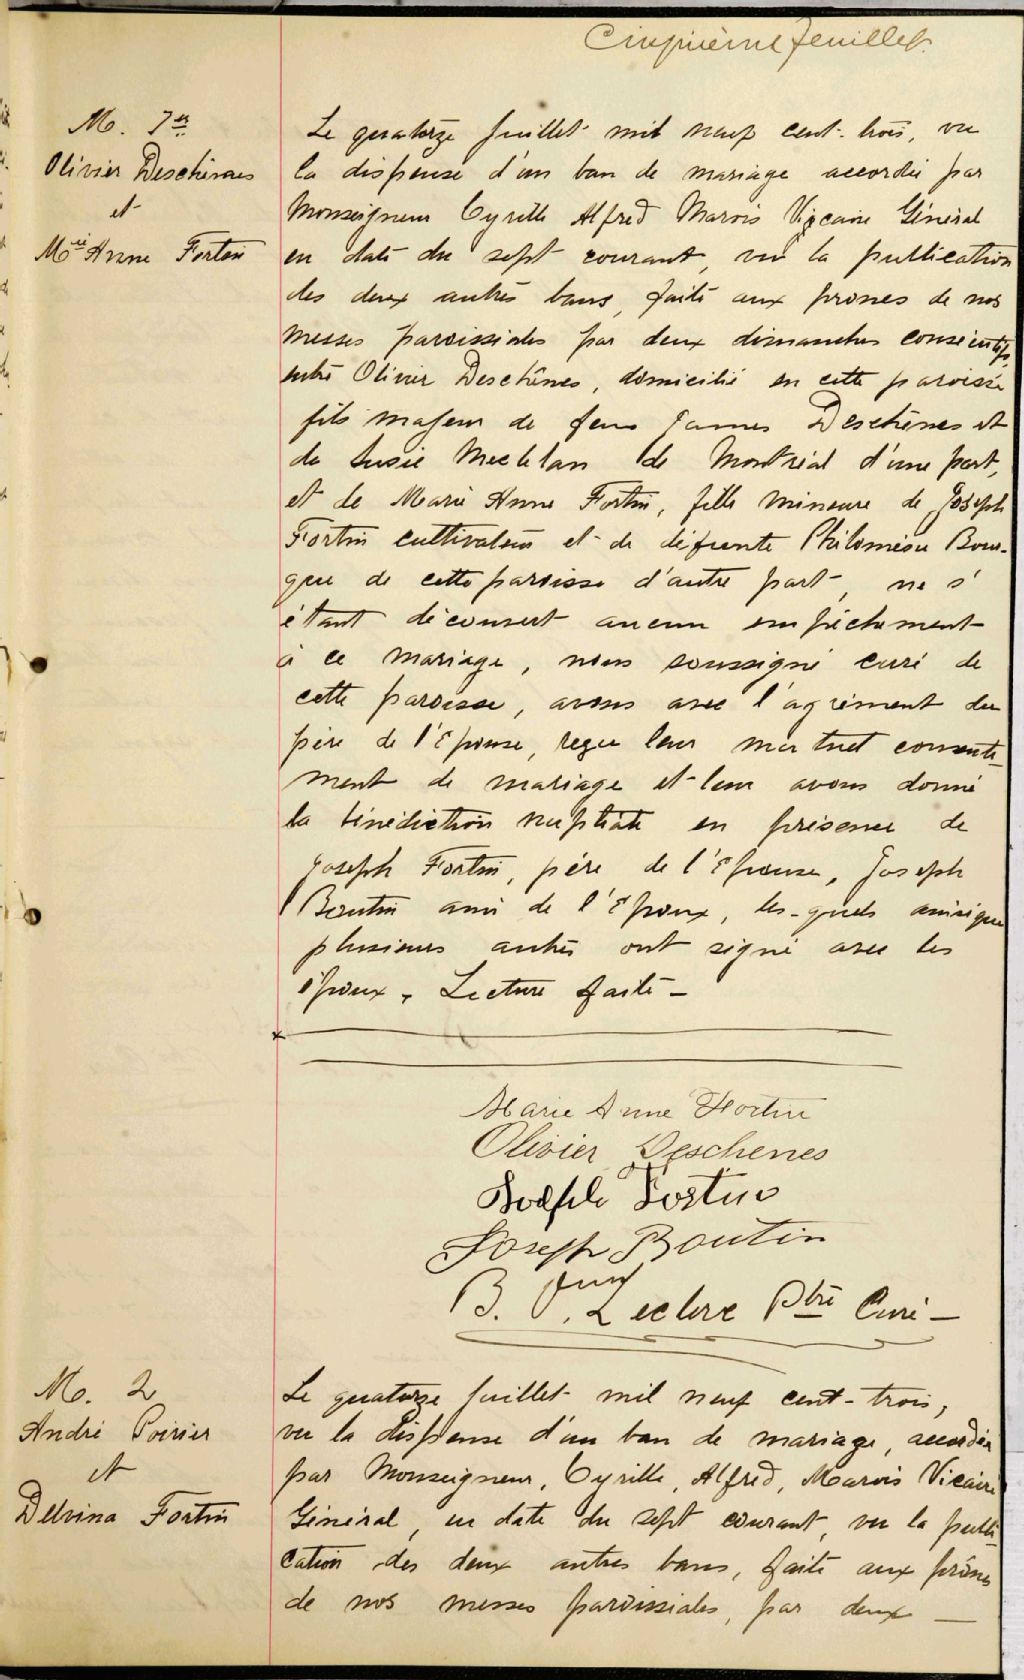 Cinquième feuillet.
M. 1er
Olivier Deschènes
et
Mie Anne Fortin
Le quatorze Juillet mil neuf cent-trois, vu
la dispense d'un ban de mariage accordée par
Monseigneur Cyrille Alfred Marois Vicaire Général
en date du sept courant, vu la publication
des deux autres bans, faite aux prones de nos
messes paroissiales par deux dimanches consécutifs,
entre Olivier Deschênes, domicilié en cette paroisse
fils majeur de feu James Deschênes et
de Susie de Montréal d'une part,
et de Marie Anne Fortin, fille mineure de Joseph
Fortin cultivateur et de défunte Philomène Bour-
que de cette paroisse d'autre part, ne s'
étant découvert aucun empêchement
à ce mariage, nous soussigné curé de
cette paroisse, avons avec l'agrément du
père de l'Epouse, reçu leur mutuel consente-
ment de mariage et leur avons donné
la bénédiction nuptiale en présence de
Joseph Fortin, père de l'Epouse, Joseph
Boutin ami de l'Epoux, les-quels ainsique
plusieurs autres ont signé avec les
époux. Lecture faite –
Marie Anne Fortin
Olivier Deschenes
Joseph Fortin
Joseph Boutin
B. Leclerc Ptre Curé –
M. 2
André Poirier
et
Delvina Fortin
Le quatorze Juillet mil neuf cent-trois,
vu la dispense d'un ban de mariage, accordée
par Monseigneur, Cyrille, Alfred, Marois Vicaire
Général, en date du sept courant, vu la publi-
cation des deux autres bans, faite aux prônes
de nos messes paroissiales, par deux —